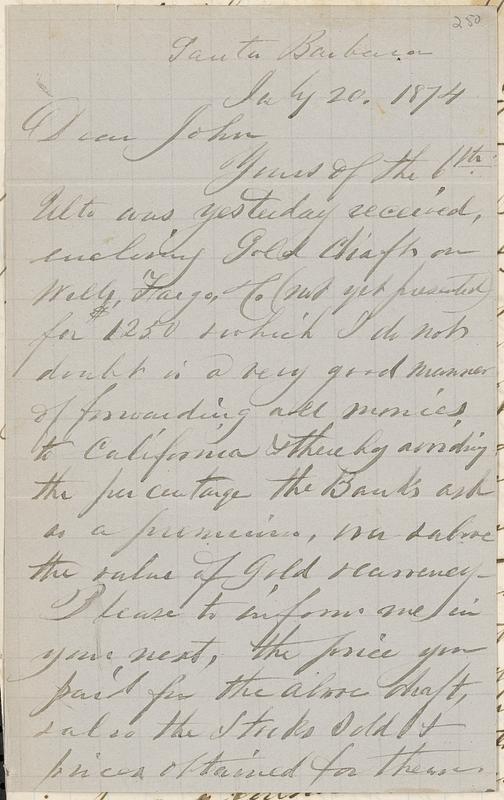 250
Santa Barbara
July 20. 1874
Dear John
Yours of the 6th
Ulto was yesterday received,
enclosing Gold draft on
Wells, Fargo, & Co (not yet presented)
for $1250 & which I do not
doubt is a very good manner
of forwarding all monies
to California & thereby avoiding
the per centage the Banks ask
as a premium, over & above
the value of Gold & currency -
Please to inform me in
your next, the price you
paid for the above draft,
& also the Stocks sold &
prices obtained for them.